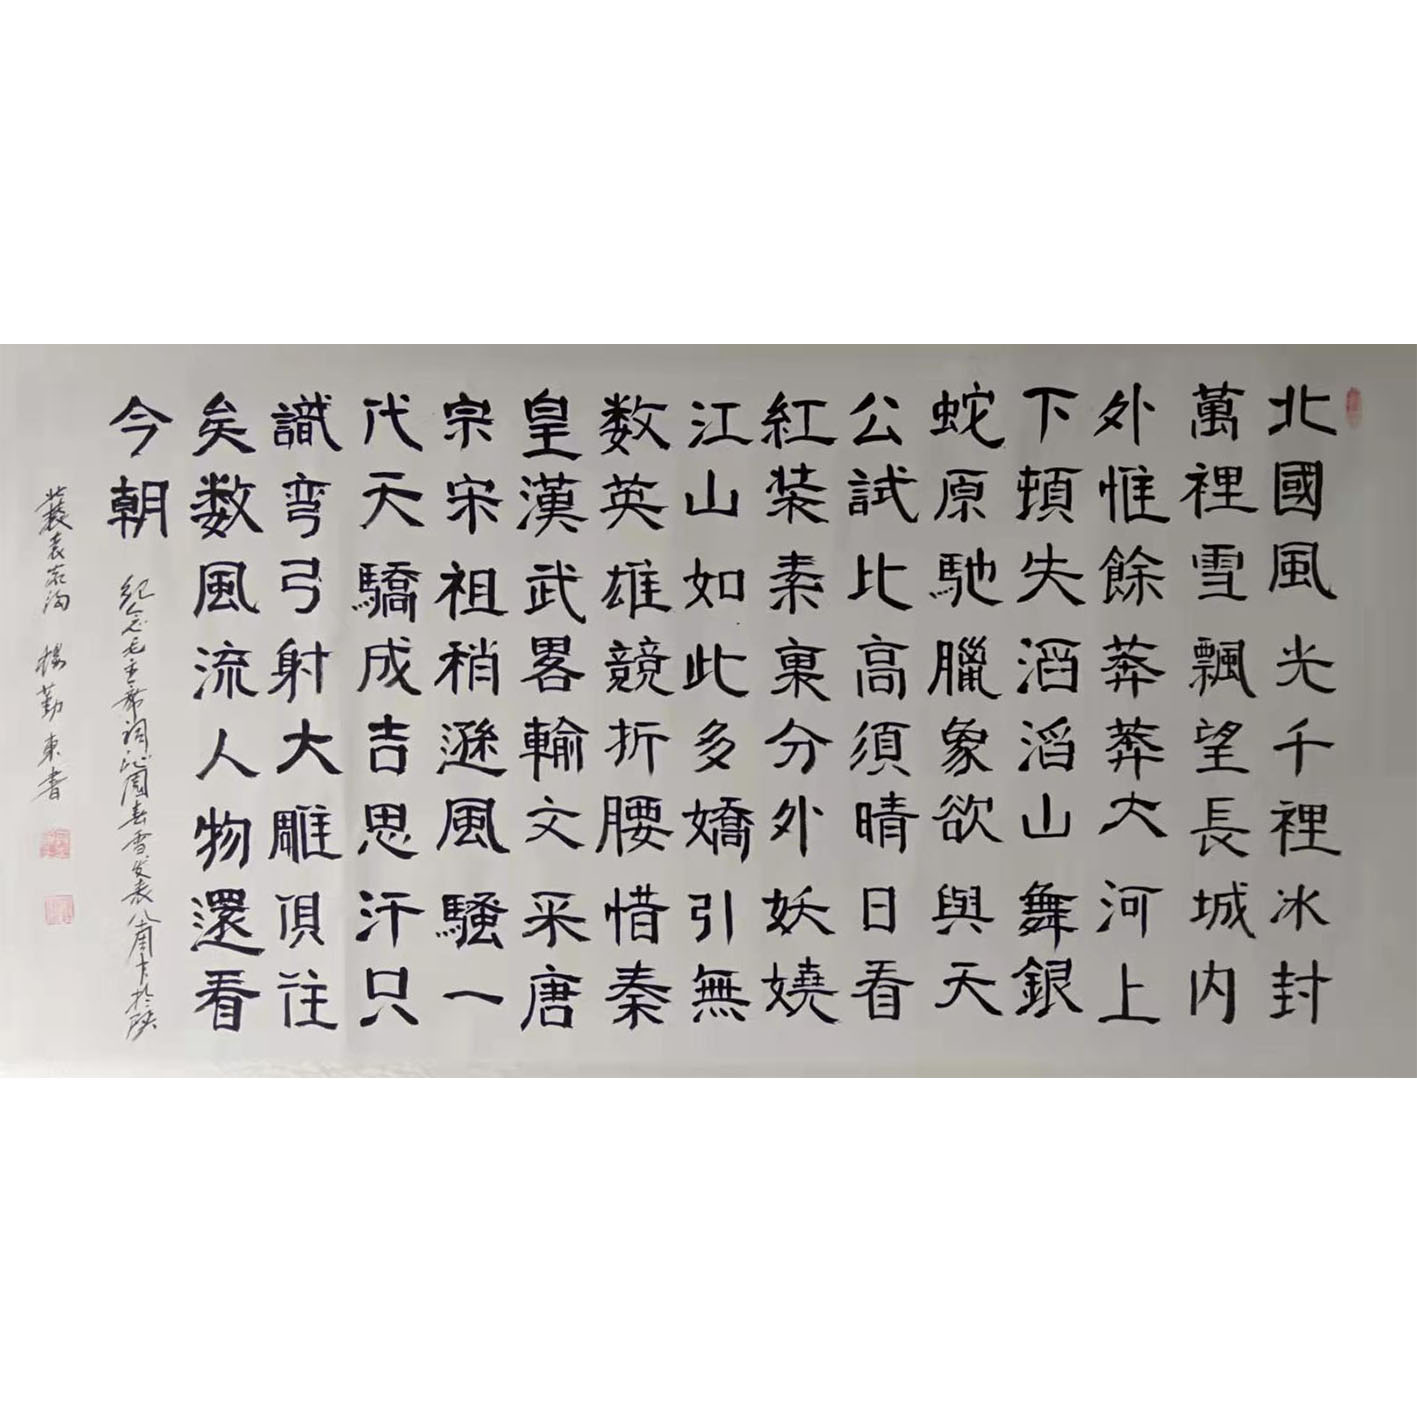 北國風光千裡冰封
萬裡雪飄望長城内
外惟餘莽莽大河上
下頓失滔滔山舞銀
蛇原馳臘象欲與天
公試比高須晴日看
紅裝素裹分外妖嬈
江山如此多嬌引無
数英雄競折腰惜秦
皇漢武畧輸文采唐
宗宋祖稍遜風騷一
代天驕成吉思汗只
識弯弓射大雕俱往
矣数風流人物還看
今朝
紀念毛主席詞沁園春雪发表八周於陝
袁家溝 楊勤東書